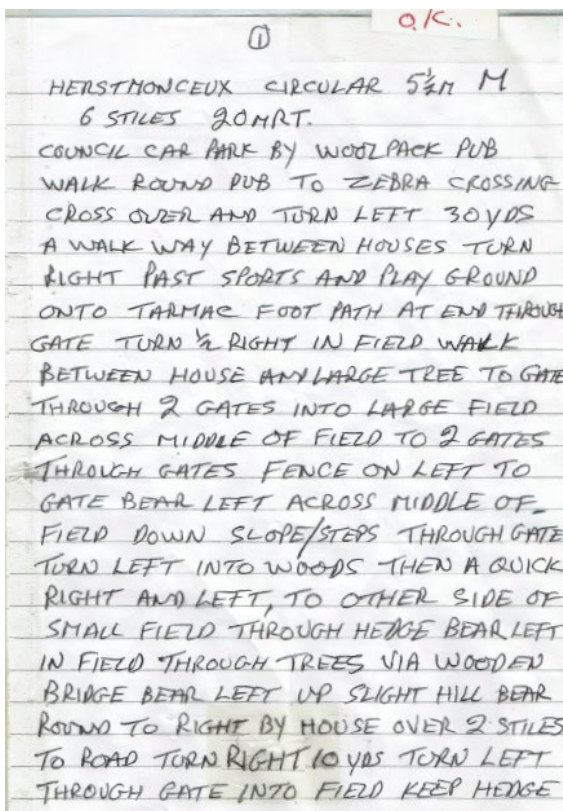 O.K.
1
HERSTMONCEUX CIRCULAR 5½M M
6 STILES 20MRT.
COUNCIL CAR PARK BY WOOLPACK PUB
WALK ROUND PUB TO ZEBRA CROSSING
CROSS OVER AND TURN LEFT 30YDS
A WALK WAY BETWEEN HOUSES TURN
RIGHT PAST SPORTS AND PLAY GROUND
ONTO TARMAC FOOT PATH AT END THROUGH
GATE TURN ½ RIGHT IN FIELD WALK
BETWEEN HOUSE AND LARGE TREE TO GATE
THROUGH 2 GATES INTO LARGE FIELD
ACROSS MIDDLE OF FIELD TO 2 GATES
THROUGH GATES FENCE ON LEFT TO
GATE BEAR LEFT ACROSS MIDDLE OF
FIELD DOWN SLOPE/STEPS THROUGH GATE
TURN LEFT INTO WOODS THEN A QUICK
RIGHT AND LEFT, TO OTHER SIDE OF
SMALL FIELD THROUGH HEDGE BEAR LEFT
IN FIELD THROUGH TREES VIA WOODEN
BRIDGE BEAR LEFT UP SLIGHT HILL BEAR
ROUND TO RIGHT BY HOUSE OVER 2 STILES
TO ROAD TURN RIGHT 10 YDS TURN LEFT
THROUGH GATE INTO FIELD KEEP HEDGE